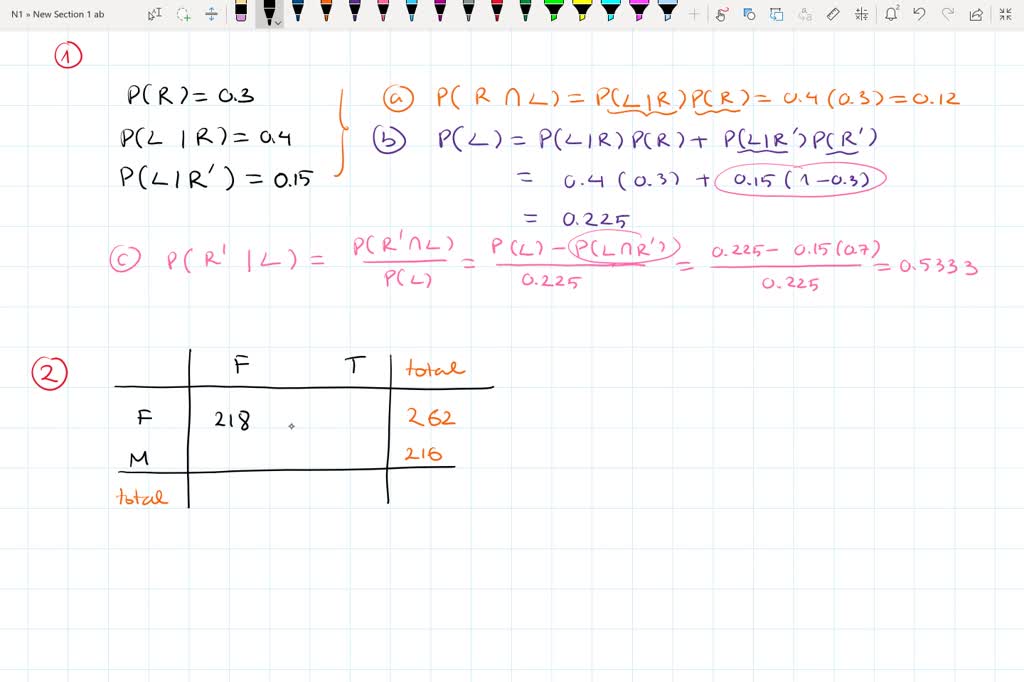 N1 » New Section 1 ab
①
P(R) = 0.3
P(L | R) = 0.4
P(L | R') = 0.15
ⓐ P( R ∩ L) = P(L|R) P(R) = 0.4 (0.3) = 0.12
ⓑ P(L) = P(L|R) P(R) + P(L|R') P(R')
= 0.4 (0.3) + 0.15 (1-0.3)
= 0.225
ⓒ P(R' | L) = P(R' ∩ L) / P(L) = P(L) - P(L∩R') / 0.225 = 0.225 - 0.15 (0.7) / 0.225 = 0.5333
②
F T total
F 218 262
M 216
total